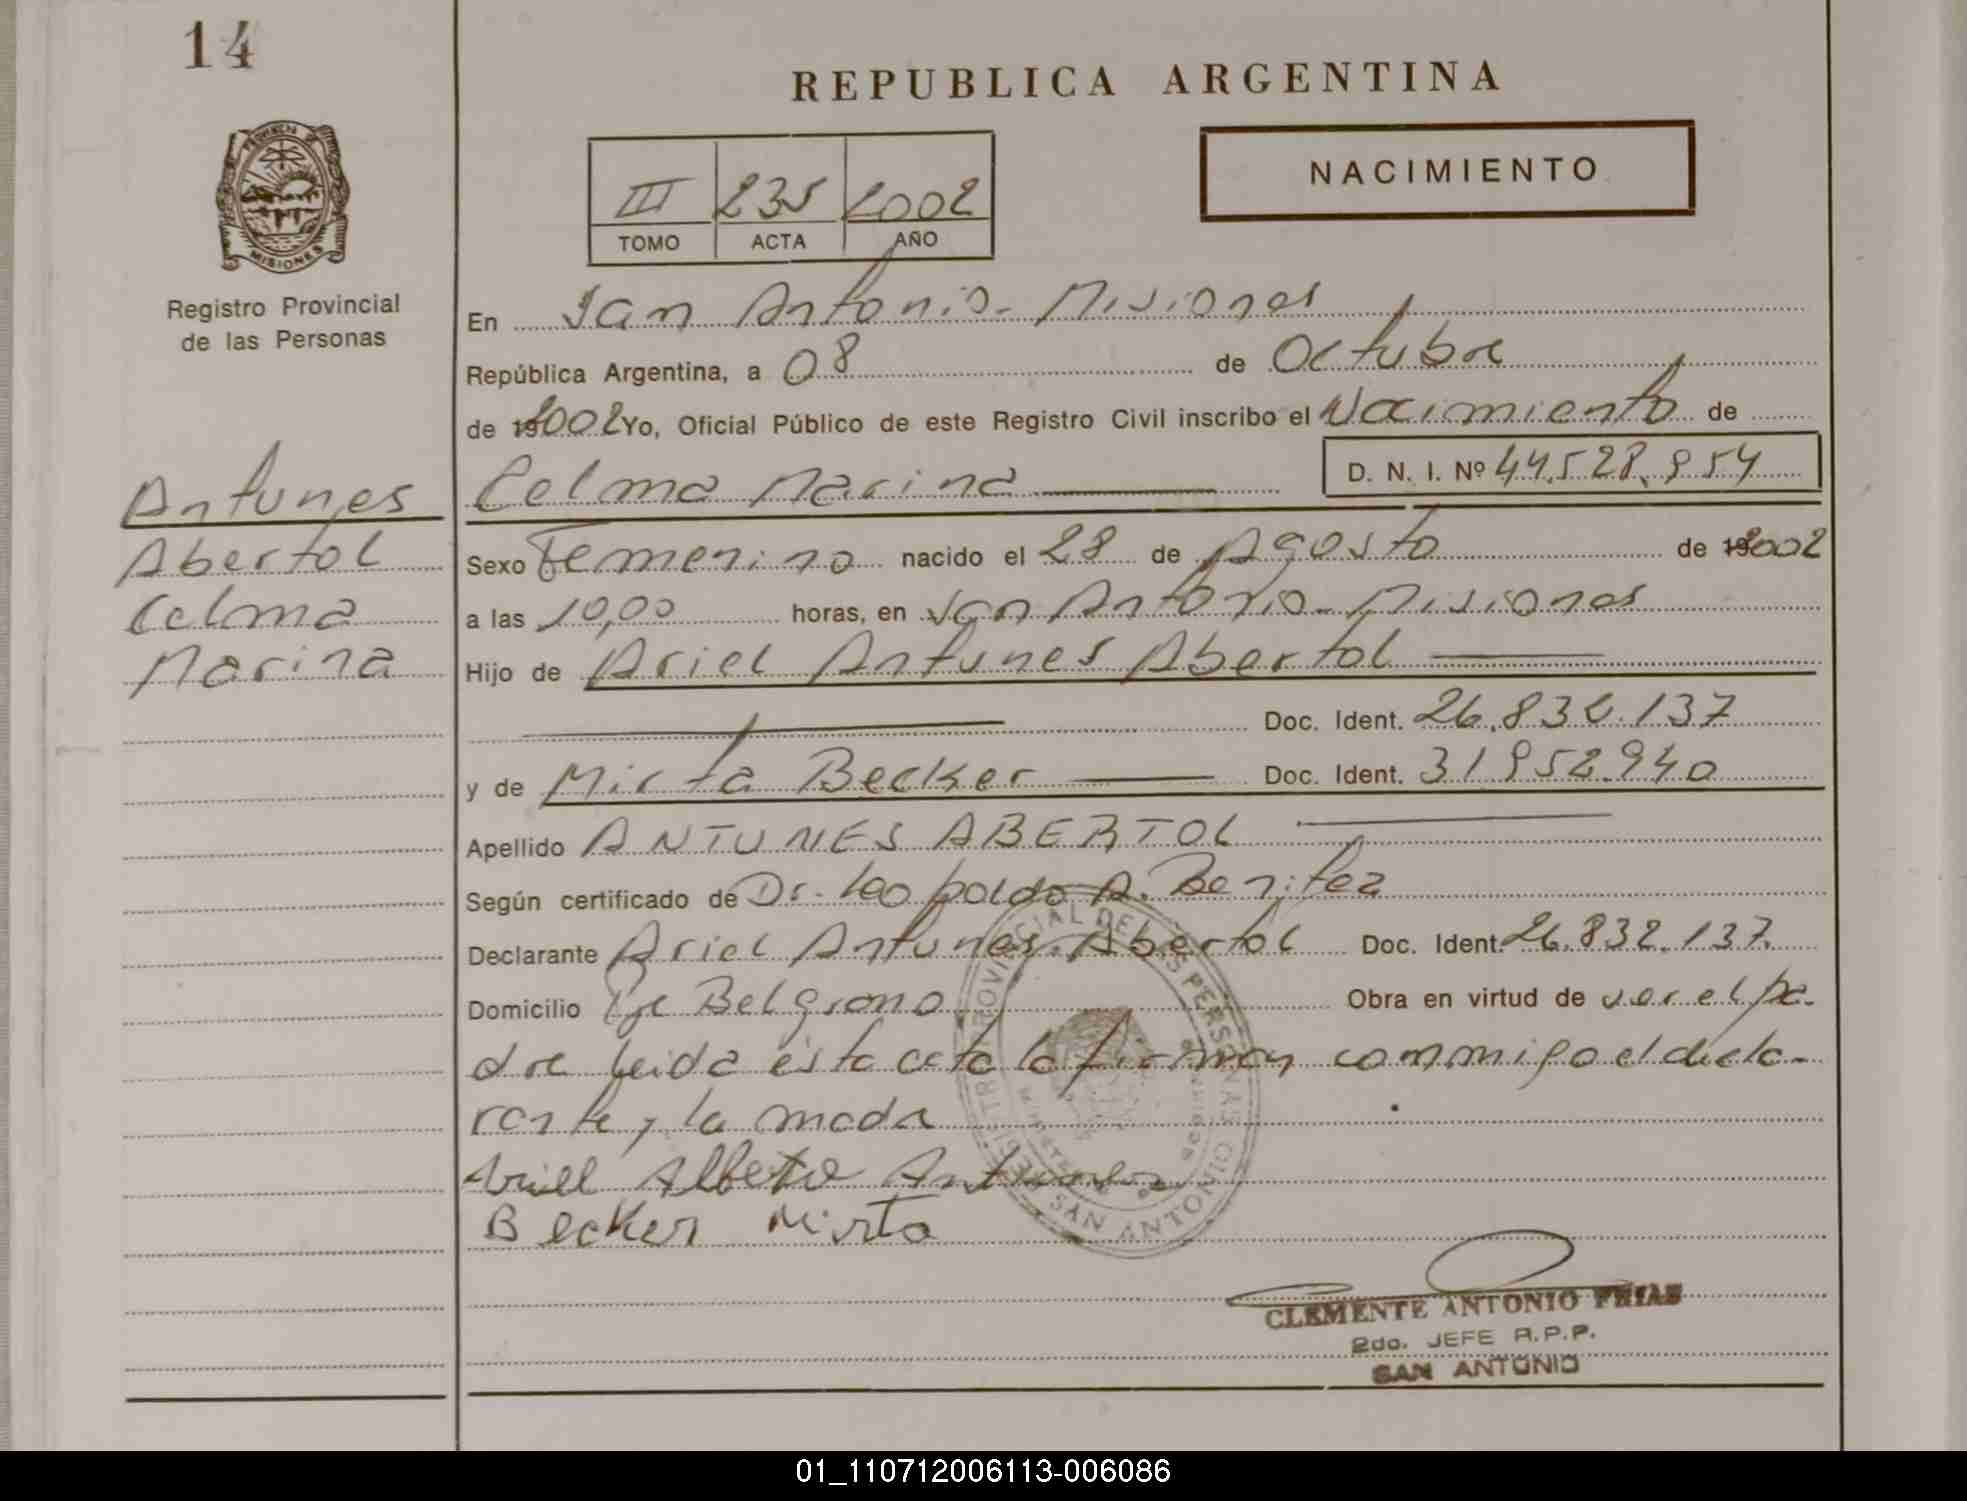 14
REPUBLICA ARGENTINA
PROVINCIA DE
MISIONES
Registro Provincial
de las Personas
III 235 2002
TOMO ACTA AÑO
NACIMIENTO
En San Antonio - Misiones
República Argentina, a 08 de Octubre
de 2002 Yo, Oficial Público de este Registro Civil inscribo el Nacimiento de
Celma Marina D. N. I. Nº 44.528.954
Antunes
Abertol
Celma
Marina
Sexo Femenino nacido el 28 de Agosto de 2002
a las 10,00 horas, en San Antonio - Misiones
Hijo de Ariel Antunes Abertol
Doc. Ident. 26.832.137
y de Mirta Becker Doc. Ident. 31952940
Apellido ANTUNES ABERTOL
Según certificado de Dr. Leopoldo A. Benitez
Declarante Ariel Antunes Abertol Doc. Ident. 26.832.137.
Domicilio Pje Belgrano Obra en virtud de ser el pa-
dre leida ésta acta la firman conmigo el decla-
rante y la madre
Ariel Alberto Antunes
Becker Mirta
REGISTRO PROVINCIAL DE LAS PERSONAS
SAN ANTONIO
CLEMENTE ANTONIO FRIAS
2do. JEFE R.P.P.
SAN ANTONIO
01_110712006113-006086